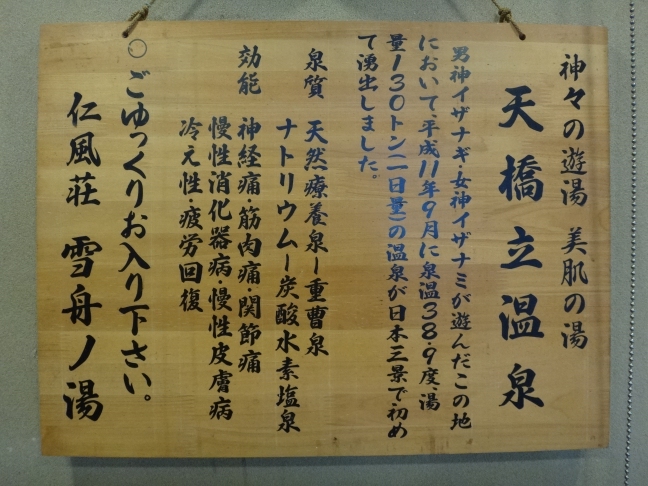 神々の遊湯 美肌の湯
天橋立温泉
男神イザナギ・女神イザナミが遊んだこの地
において、平成11年9月に泉温38・9度、湯
量130トン(一日量)の温泉が日本三景で初め
て湧出しました。
泉質 天然療養泉ー重曹泉
ナトリウムー炭酸水素塩泉
効能 神経痛・筋肉痛・関節痛
慢性消化器病・慢性皮膚病
冷え性・疲労回復
○ ごゆっくりお入り下さい。
仁風荘 雪舟ノ湯